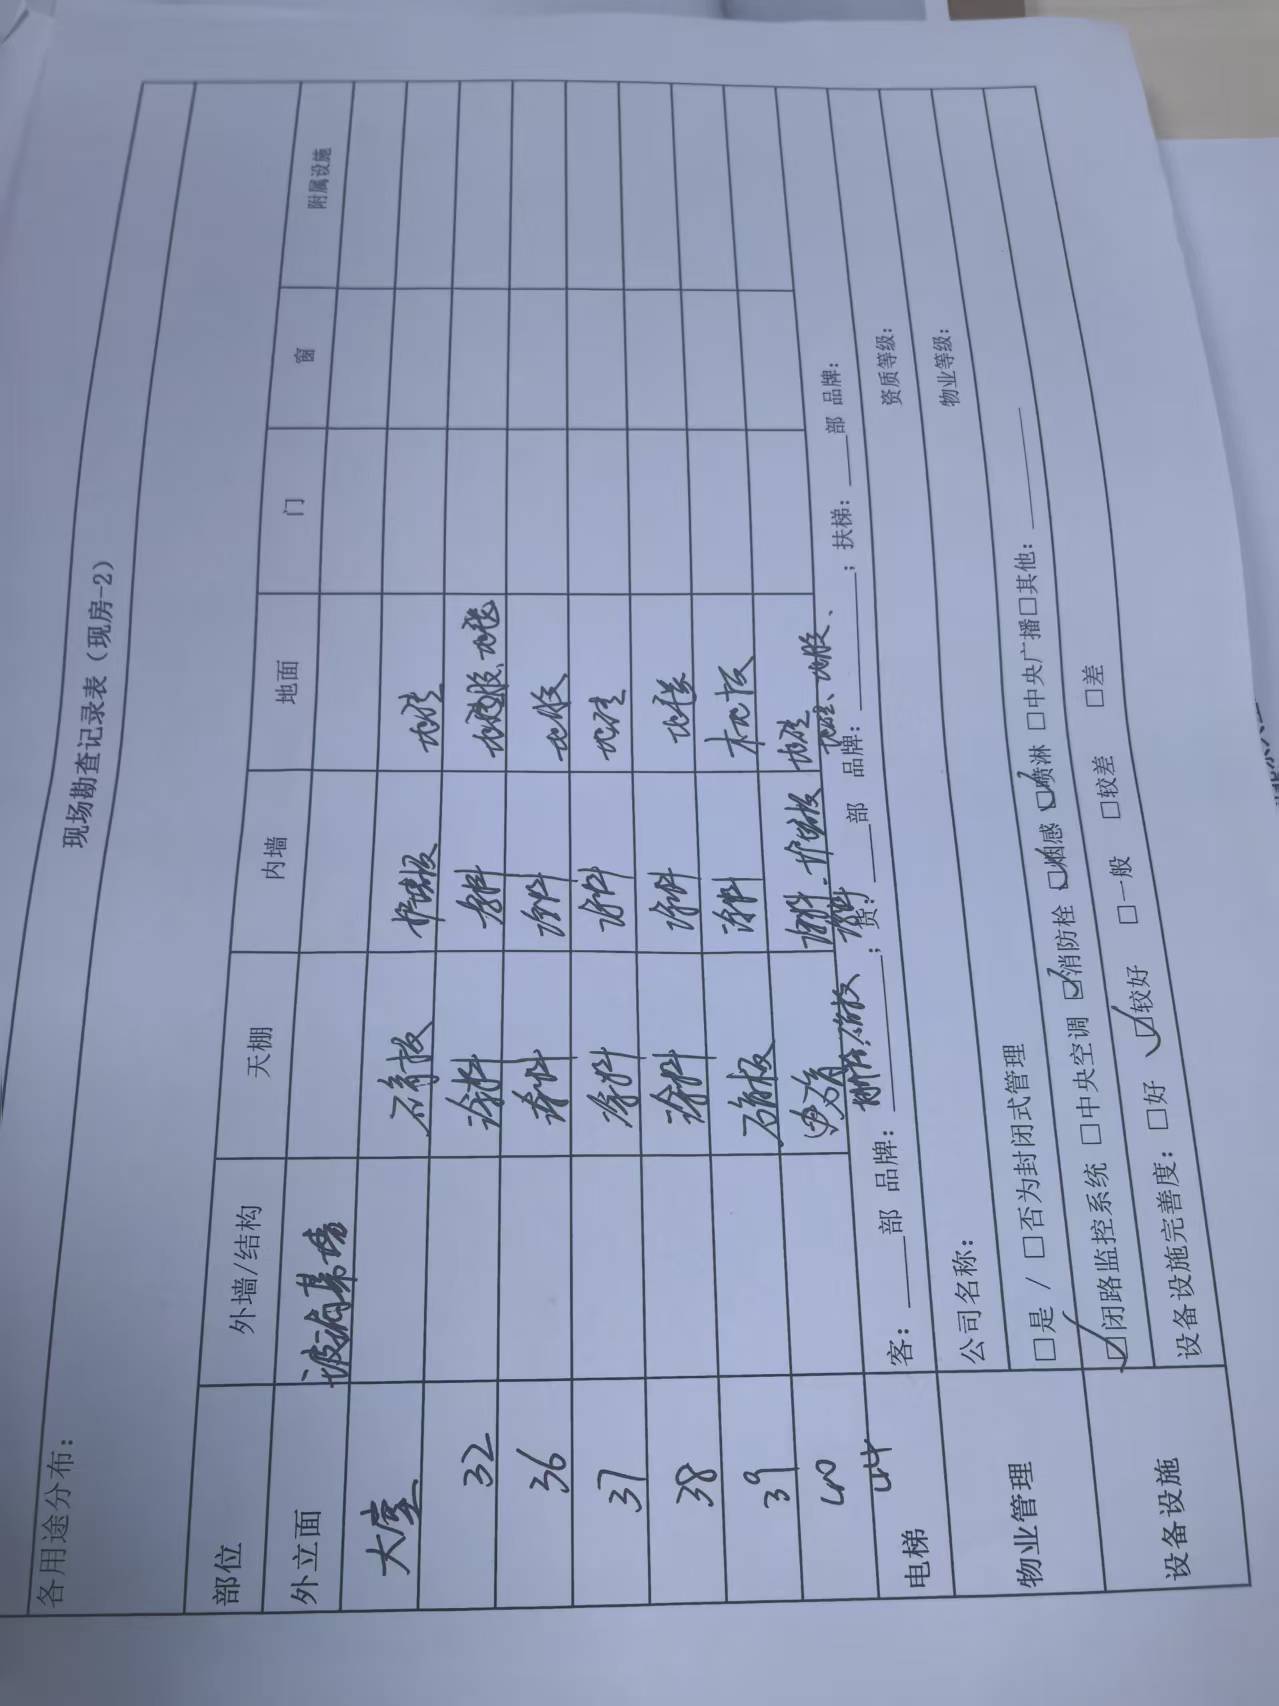 现场勘查记录表（现房-2）
各用途分布：
部位 外墙/结构 天棚 内墙 地面 门 窗 附属设施
外立面 玻璃幕墙
大堂 石膏板 护墙板 地砖
32 涂料 涂料 地胶、地毯
36 涂料 涂料 地胶
37 涂料 涂料 地砖
38 涂料 涂料 地毯
39 石膏板 涂料 木地板
40 石膏 涂料、护墙板 地砖
44 石膏板 涂料 地砖、地胶、
电梯 客：____部 品牌：________；货：____部 品牌：________；扶梯：____部 品牌：
物业管理 公司名称： 资质等级：
□是 / □否为封闭式管理 物业等级：
设备设施 ☑闭路监控系统 □中央空调 ☑消防栓 ☑烟感 ☑喷淋 □中央广播□其他：________
设备设施完善度：□好 ☑较好 □一般 □较差 □差